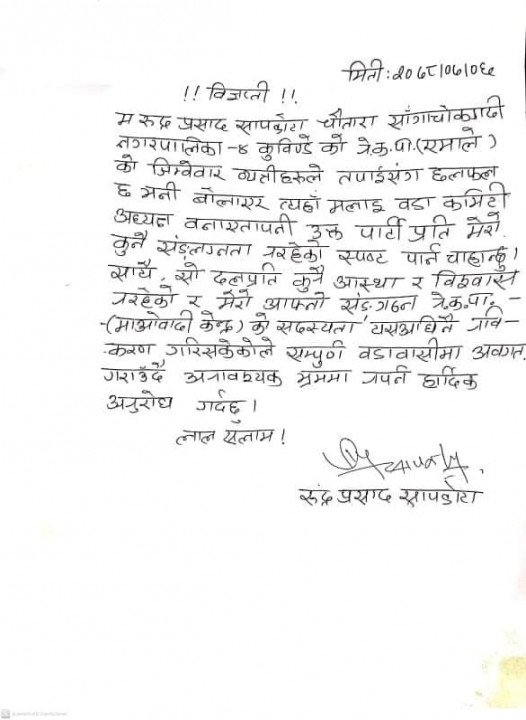 मिती: २०७८।०७।०६
!! विज्ञप्ती !!
म रुद्र प्रसाद सापकोटा चौतारा साँगाचोकगढी
नगरपालिका -४ कुविण्डे को ने.क.पा.(एमाले)
को जिम्वेवार व्यतीहरुले तपाईसंग छलफल
छ भनी बोलाएर त्यहाँ मलाइ वडा कमिटी
अध्यक्ष बनाएतापती उक्त पार्टी प्रति मेरो
कुनै संङ्लग्नता नरहेको स्पष्ट पार्न चाहान्छु।
साथै, सो दलप्रति कुनै आस्था र विश्वास
नरहेको र मेरो आफ्नो संङगठन ने.क.पा. -
-(माओवादी केन्द्र) को सदस्यता यसअघिनै नवि-
करण गरिसकेकोले सम्पुर्ण वडावासीमा अवगत
गराउँदै अनावश्यक भ्रममा नपर्न हार्दिक
अनुरोध गर्दछु।
लाल सलाम!
रुद्र प्रसाद सापकोटा